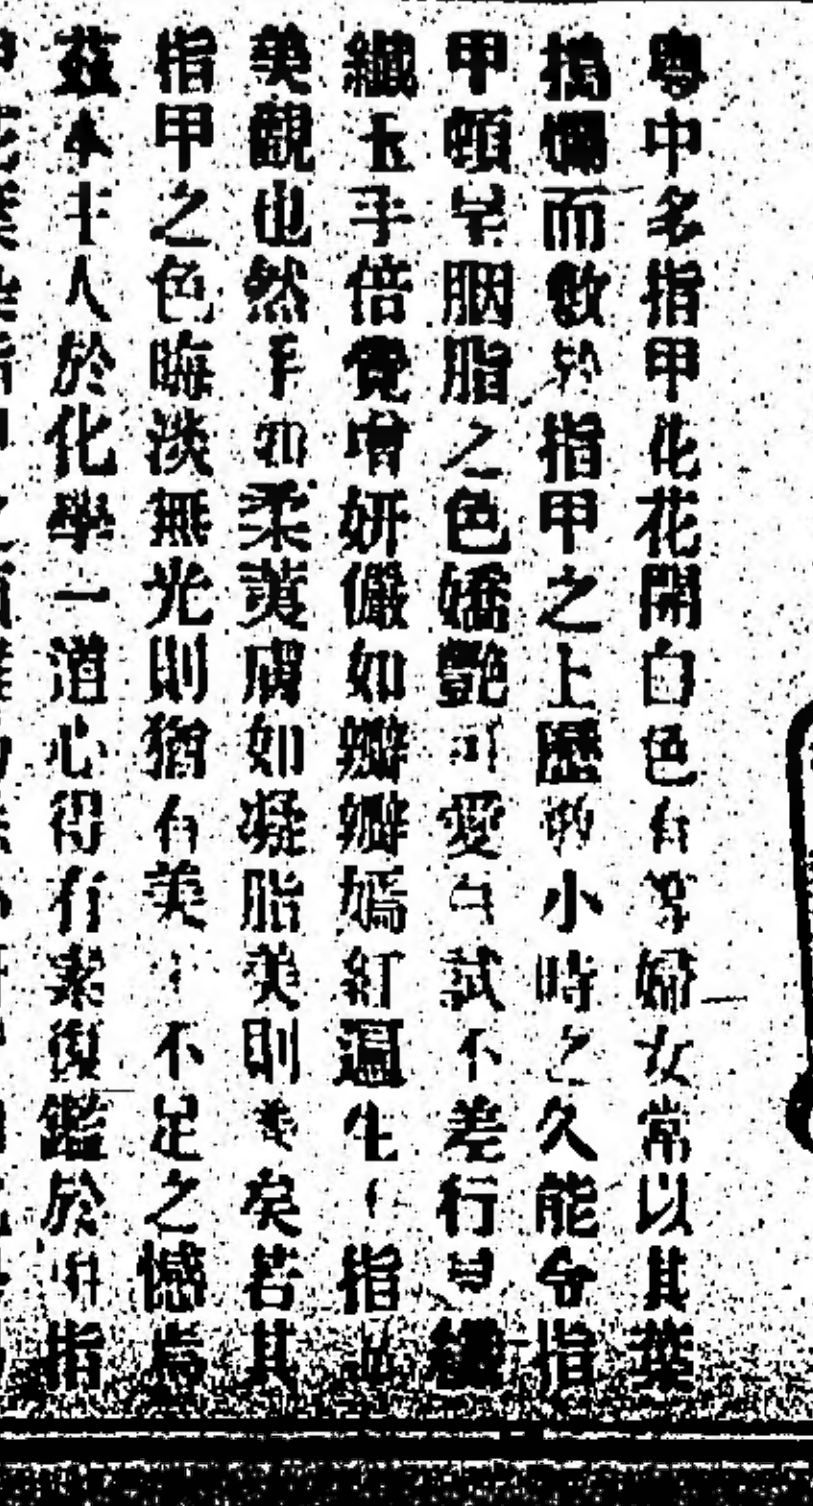 粤中名指甲花花開白色有等婦女常以其葉
搗爛而敷於指甲之上歷數小時之久能令指
甲頓呈胭脂之色嬌艷可愛白試不差行見纖
纖玉手倍覺增妍儼如瓣瓣嫣紅遍生指
美觀也然手如柔荑膚如凝脂美則美矣若其
指甲之色晦淡無光則猶有美不足之憾焉
茲本主人於化學一道心得有素復鑑於指